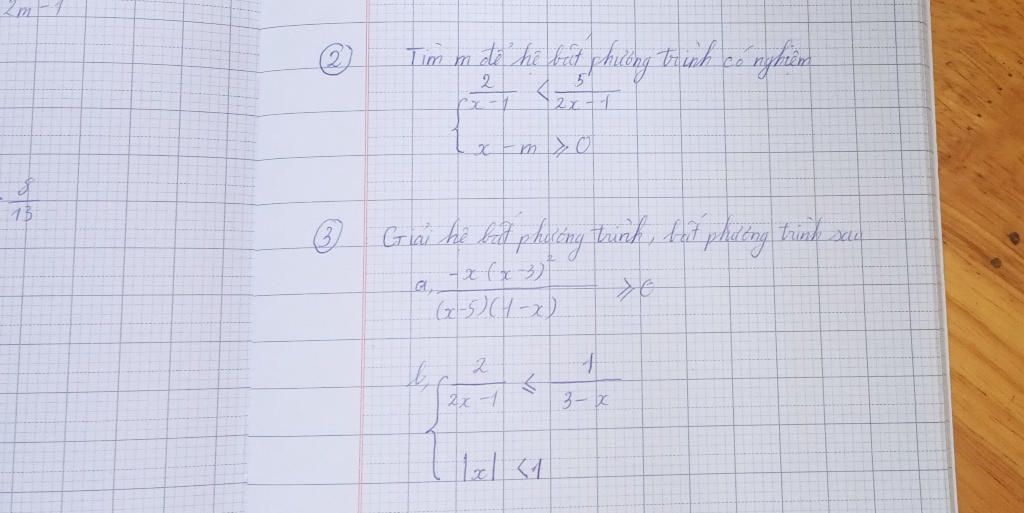 2m - 1
8/13
② Tìm m để hệ bất phương trình có nghiệm
{ 2/(x-1) < 5/(2x-1)
x - m ⩾ 0
③ Giải hệ bất phương trình, bất phương trình sau
a, -x(x-3)²/((x-5)(1-x)) ⩾ 0
b, { 2/(2x-1) ⩽ 1/(3-x)
|x| < 1